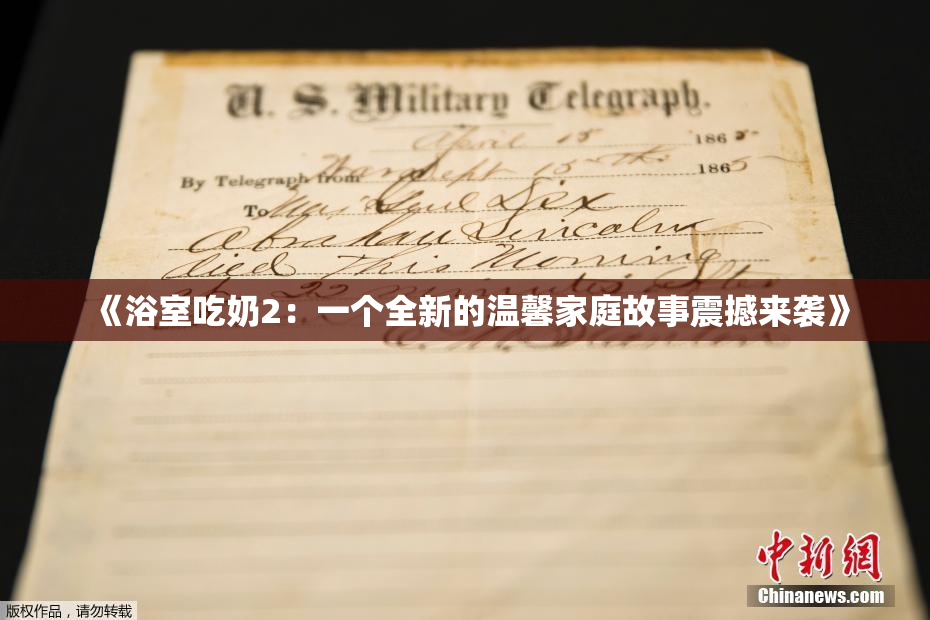 U. S. Military Telegraph.
April 15 1865
By Telegraph from War Dept 15th 1865
To Maj Genl Dix
Abraham Lincoln
died This Morning
at 22 minutes after
《浴室吃奶2：一个全新的温馨家庭故事震撼来袭》
E. M. Stanton
中新网
Chinanews.com
版权作品，请勿转载